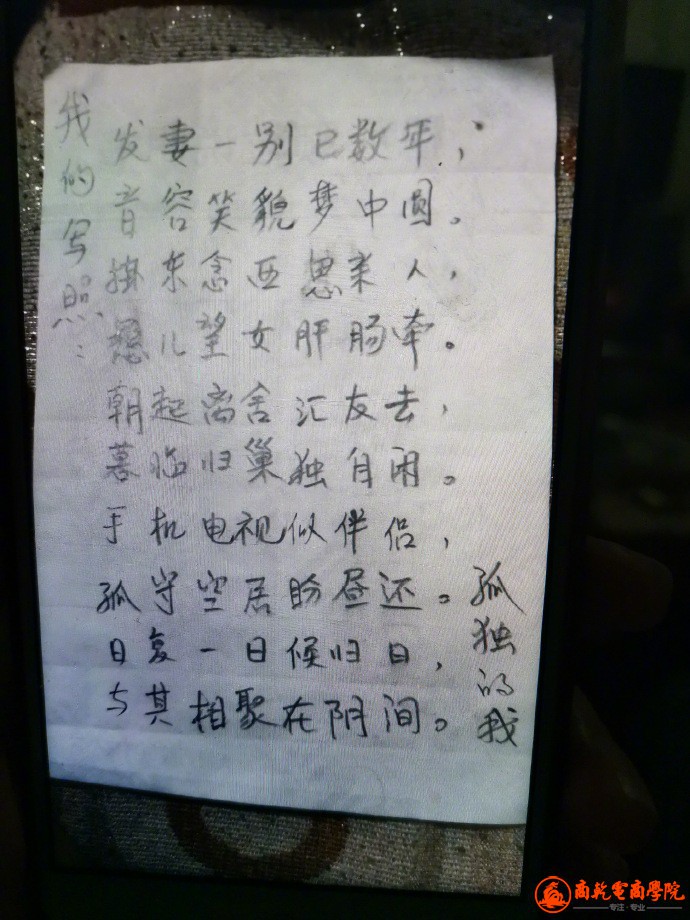 我的写照:
发妻一别已数年,
音容笑貌梦中圆。
掛东念西思亲人,
想儿望女肝肠牵。
朝起离舍汇友去,
暮临归巢独自闲。
手机电视似伴侣,
孤守空居盼昼还。
日复一日候归日,
与其相聚在阴间。
孤独的我
商乾电商學院
专注·专业